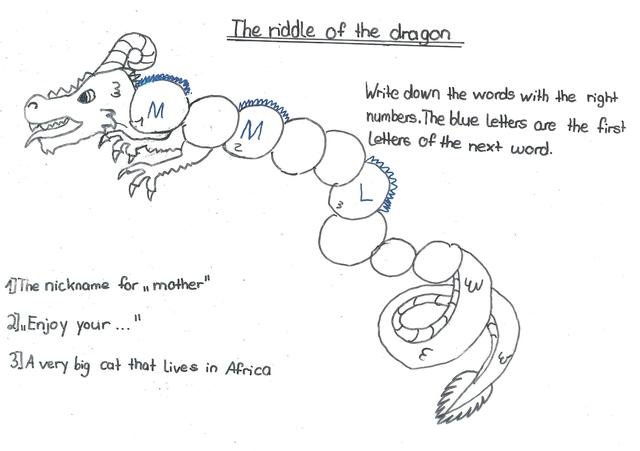 The riddle of the dragon
M
1
M
2
L
3
Write down the words with the right
numbers. The blue letters are the first
letters of the next word.
1] The nickname for „mother"
2] „Enjoy your ..."
3] A very big cat that lives in Africa